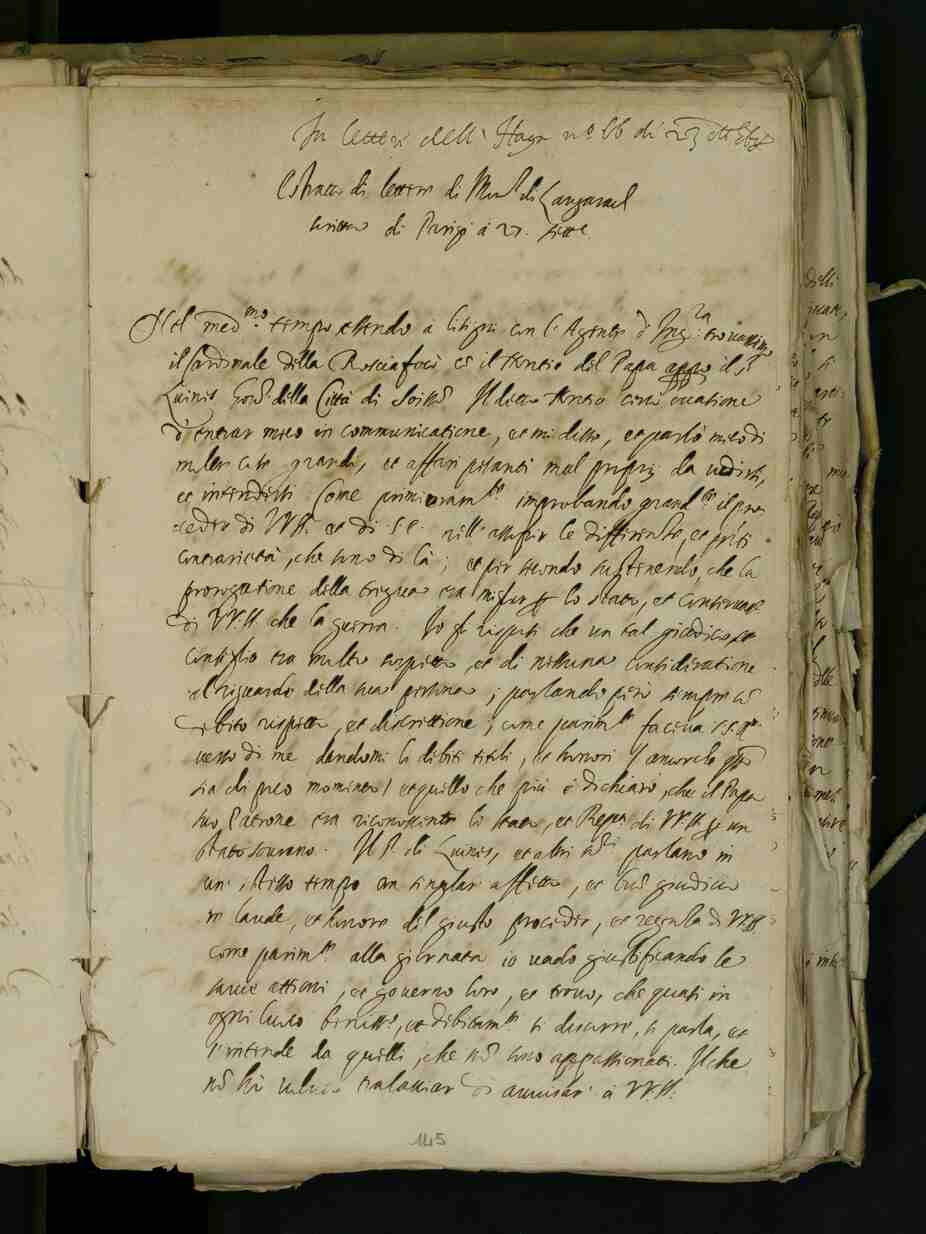 In lettere dell' Haya n.º 66 di 23 ott.
Estratto di lettere di Mons.r di Langarach
scritta di Parigi à 27. sette.
Nel med.mo tempo essendo a Litigni con l'Agente d'Ing.ra trovassimo
il Cardinale della Rosciafocò et il Nontio del Papa appo il S.r
Quinis Gov.r della Città di Soiss. Il detto Nontio con occasione
d'entrar meco in communicatione, et mi disse, et parlò meco di
molte cose grandi, et affari pesanti mal proprij da udirsi,
et intendersi. Come primieram.te improbando grand.te il pro
ceder di VV.SS. et di S.E. nell' assopir le differenze, et
contrarietà, che sono di là; et per secondo sustinendo, che la
prorogatione della tregua era meglior p lo stato, et
di VV.SS. che la guerra. Io gli risposi che un tal giudicio, et
consiglio era molto sospetto, et di nissuna consideratione
al riguardo della sua persona; parlando però sempre cō
debito rispetto, et discrettione; come parim.te faceva S.S.
verso di me dandomi li debiti titoli, et honori (ancorche
sia di poco momento) et quello che più è dichiarò, che il Papa
suo Patrone era riconoscente lo stato, et Repu. di VV.SS. p un
stato sovrano. Il S.r di Quinis, et altri parlano in
un' istesso tempo con singolar affetto, et giudicio
in laude, et honore del giusto proceder, et regenza di VV.SS.
come parim.te alla giornata io vado giustificando le
sue attioni, et governo loro, et trovo, che quasi in
ogni luoco beniss.o, et debitam.te si discorre, si parla, et
s'intende da quelli, che nō sono appassionati. Il che
nō hò voluto tralasciar di avvisar à VV.SS.
145